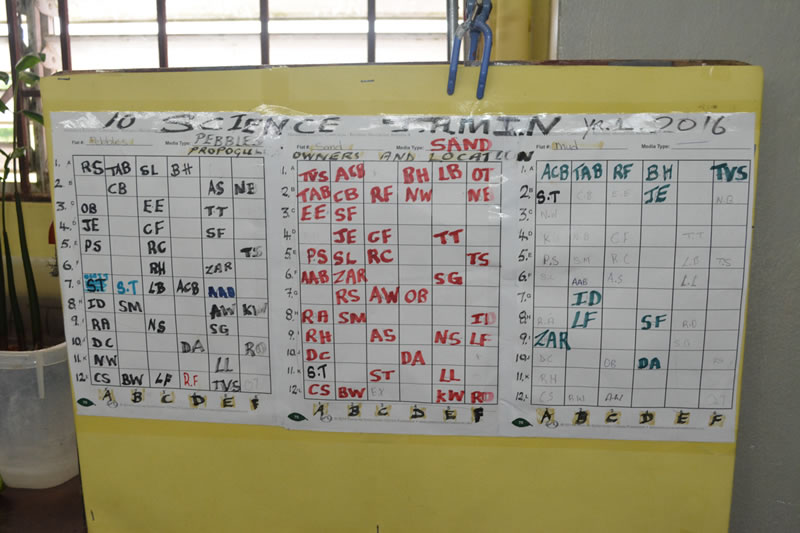 10 SCIENCE YR.1. 2016
Flat #: Pebbles Media Type: PEBBLES
PROPOGUL
Flat #: Sand Media Type: SAND
OWNERS AND LOCATION
Flat #: Mud Media Type:
1. RS TAB SL BH
2. CB AS NE
3. OB EE TT
4. JE CF SF
5. PS RC TS
6. RH ZAR
7. S.T S.T LB ACB AAB
8. ID SM AW KW
9. RA NS SG
10. DC DA RD
11. NW LL
12. CS BW LF R.F TVS OT
A B C D E F
1. TVS ACB BH LB OT
2. TAB CB RF NW NE
3. EE SF
4. JE CF TT
5. P.S SL RC TS
6. AAB ZAR SG
7. RS AW OB
8. RA SM ID
9. RH AS NS LF
10. DC DA
11. S.T ST LL
12. CS BW KW RD
A B C D E F
1. ACB TAB RF BH TVS
2. S.T CB JE
3. NW
4. CF TT
5. P.S SM RC LB TS
6. AAB A.S LL
7. ID
8. RA LF SF RD
9. ZAR SG
10. DC OB DA
11. RH
12. CS BW AW OT
A B C D E F